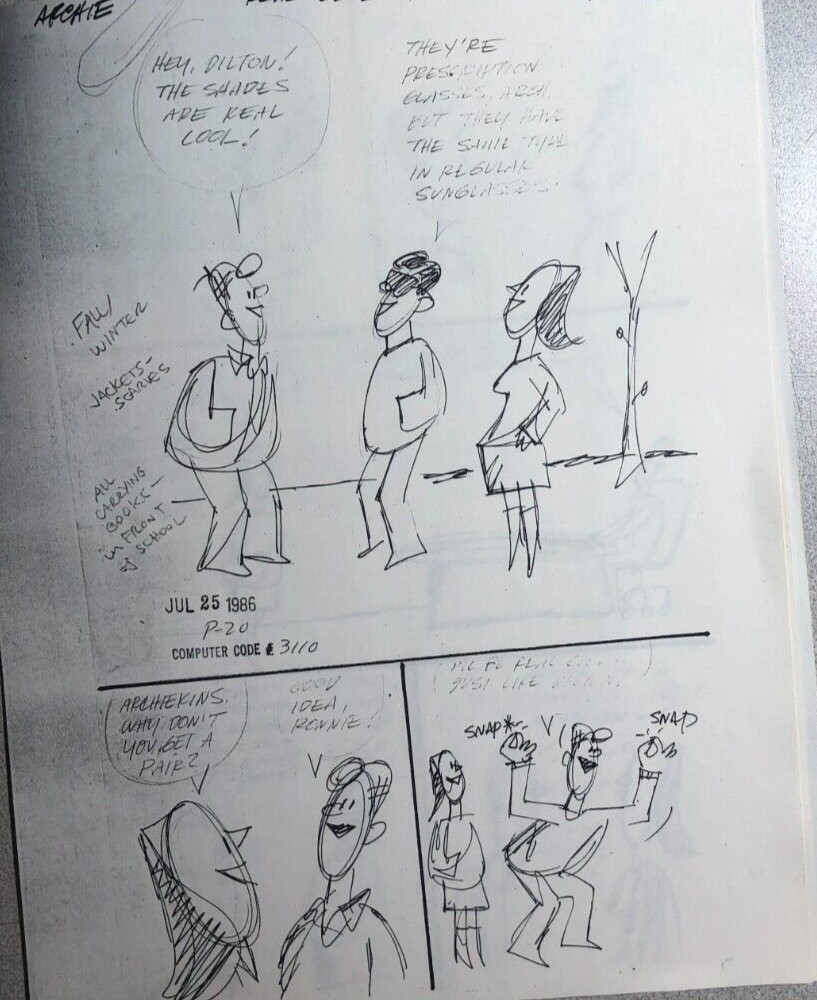 ARCHIE
HEY, DILTON!
THE SHADES
ARE REAL
COOL!
THEY'RE
PRESCRIPTION
GLASSES, ARCH,
BUT THEY HAVE
THE SAME TYPE
IN REGULAR
SUNGLASSES!
FALL/
WINTER
JACKETS-
SCARVES
ALL
CARRYING
BOOKS-
in FRONT
of SCHOOL
JUL 25 1986
P-20
COMPUTER CODE # 3110
ARCHIEKINS,
WHY DON'T
YOU GET A
PAIR?
GOOD
IDEA,
RONNIE!
I'LL BE REAL
JUST LIKE
SNAP
SNAP